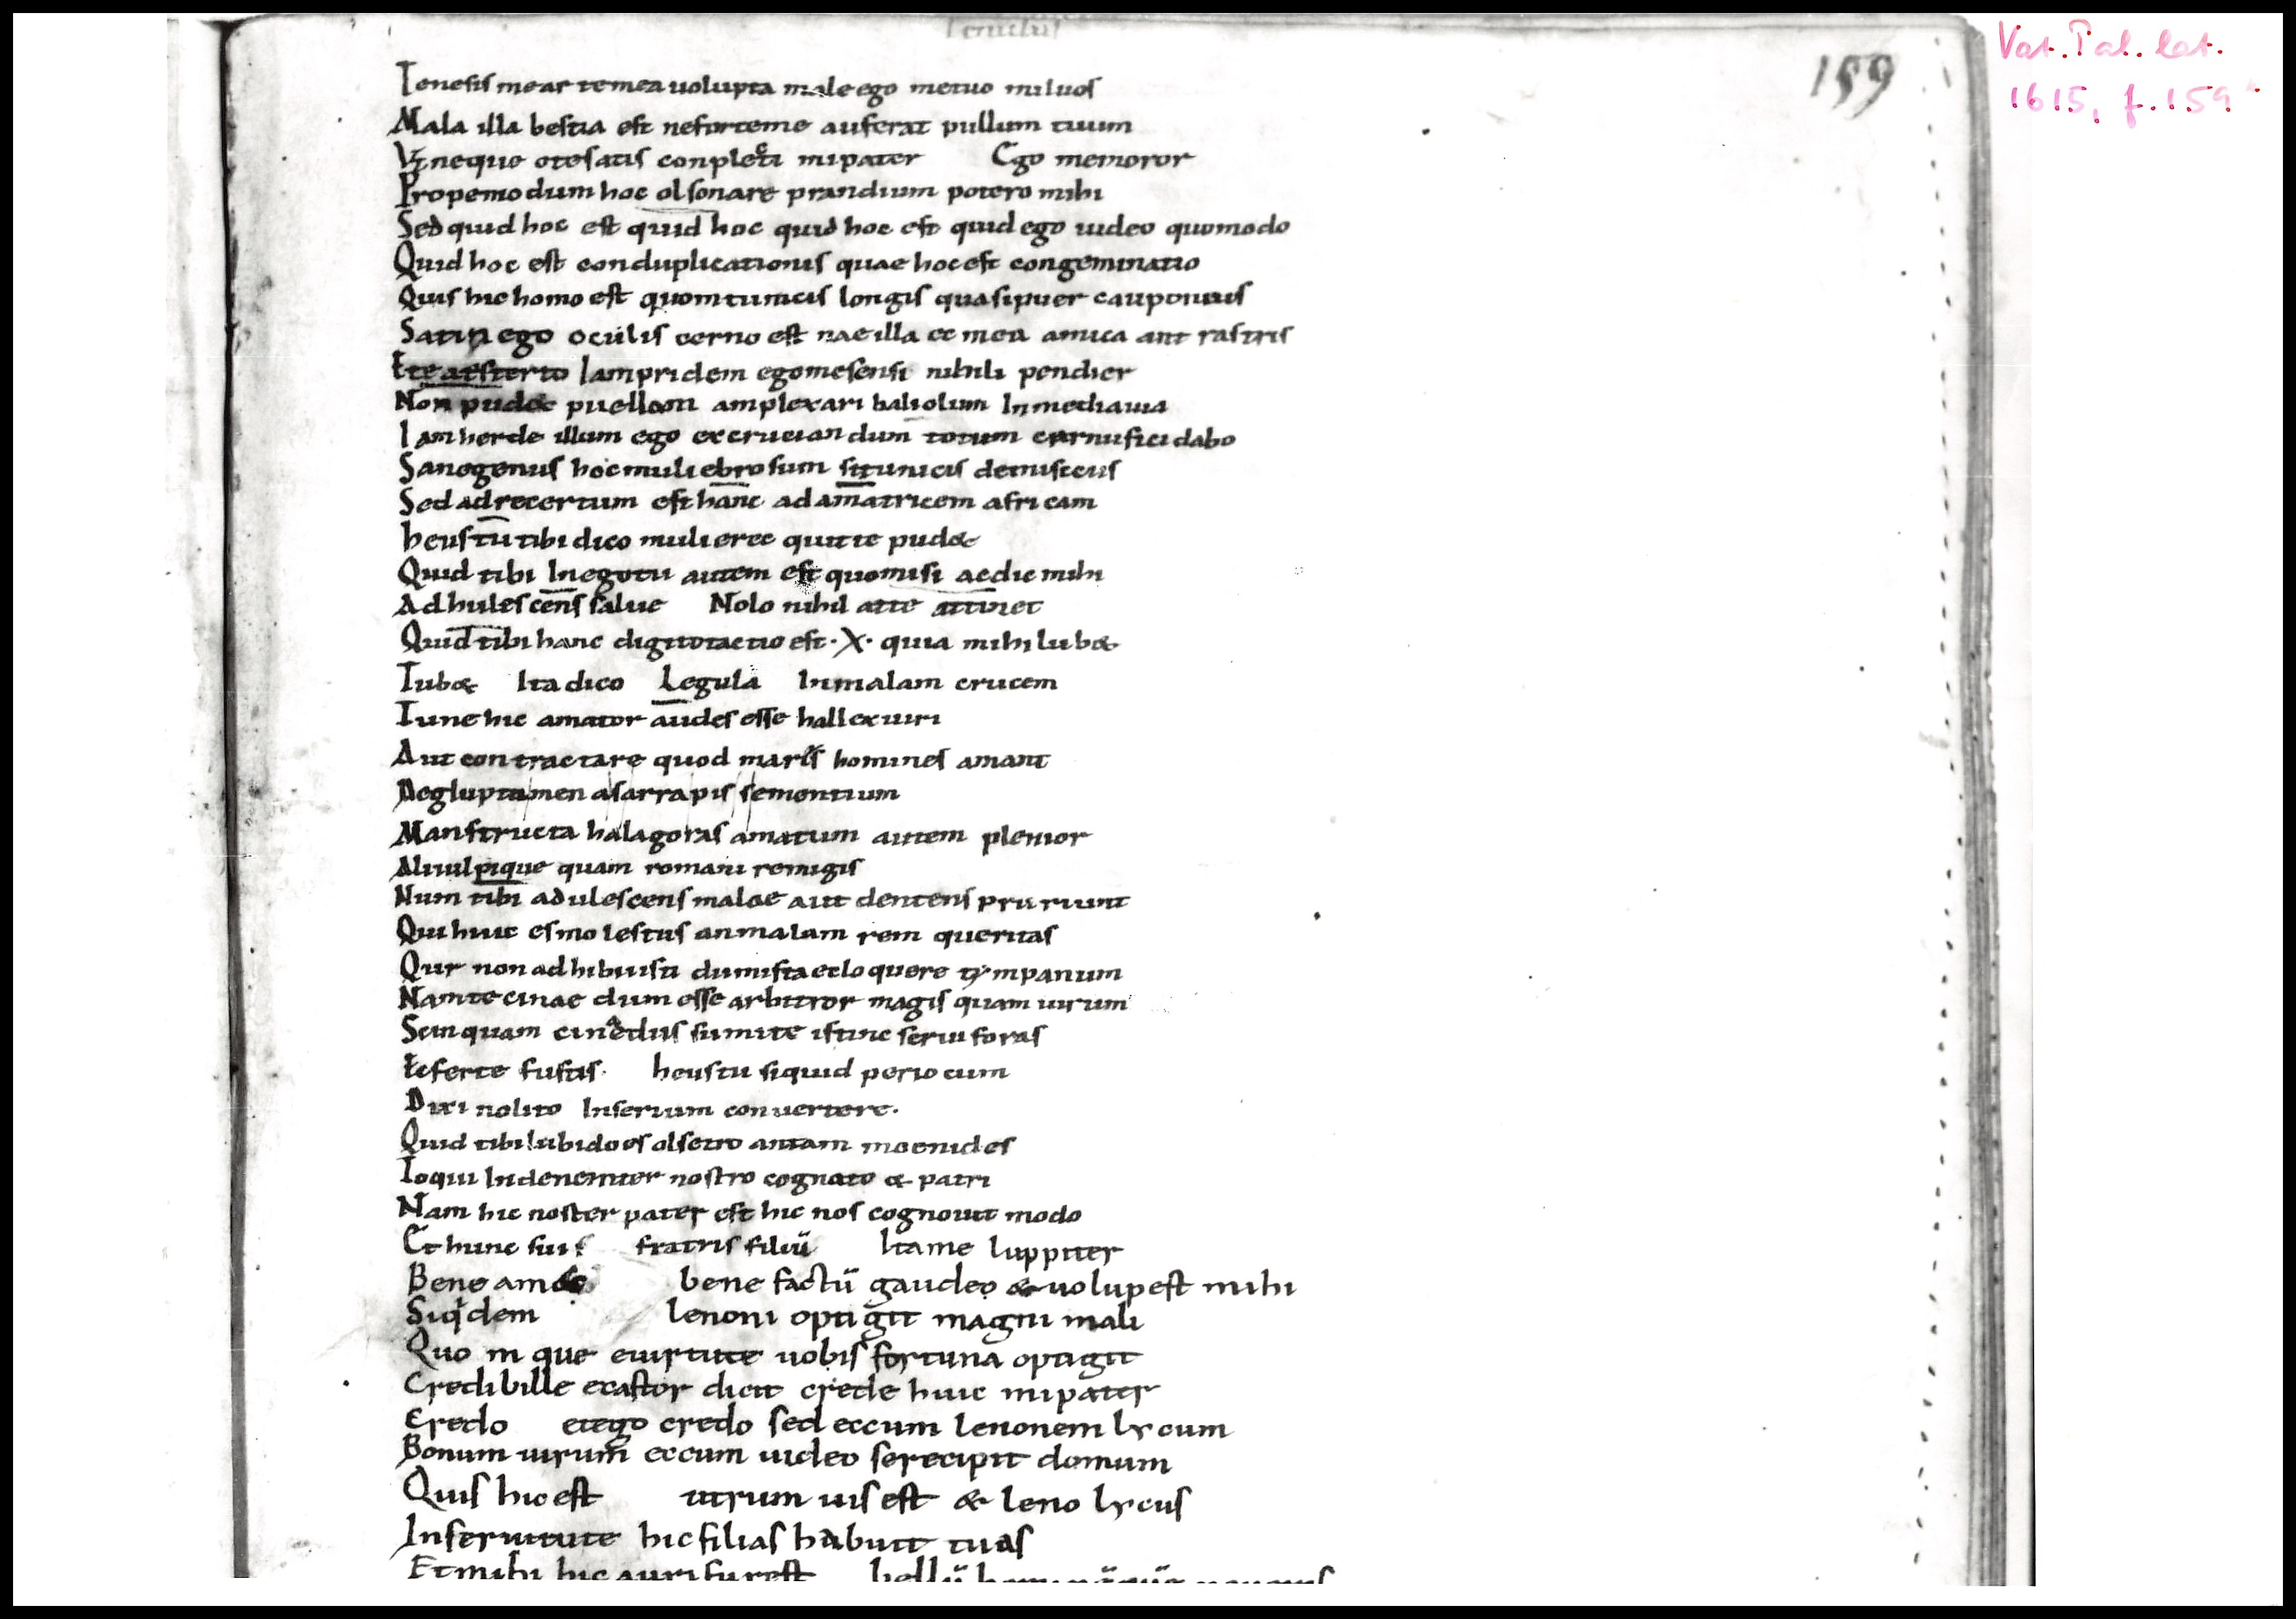 159
Vat. Pal. lat.
1615, f. 159
Tenesis mear temea uolupta male ego metuo miluos
Mala illa bestia est neforteme auferat pullum tuum
neque otesatis conpleti mipater Ego memoror
Propemodum hoc olsonare prandium potero mihi
Sed quid hoc est quid hoc quid hoc est quid ego uideo quomodo
Quid hoc est conduplicationis quae hoc est congeminatio
Quis hic homo est quom tunicis longis quasi puer cauponius
Satin ego oculis cerno est nae illa ec mea amica ant rastris
Iampridem egomesensi nihili pendier
Non pudet puellam amplexari baliolum In mediauia
Iam hercle illum ego excruciandum totum carnufici dabo
Sanegenus hoc muliebrosum situnicis demisicius
Sed adrecertum est hanc adamatricem africam
heus tu tibi dico mulierec quitte pudet
Quid tibi Inegotii autem est quomisi aedic mihi
Adhulescens salue Nolo nihil atte attinet
Quid tibi hanc digitotactio est · X · quia mihi lubet
Tubet Ita dico Legula In malam crucem
Tune hic amator audes esse hallexuiri
Aut contractare quod maris homines amant
Degluptamen asarrapis sementium
Manstructa halagoras amatum autem plenior
Aliuulpique quam romani remigis
Num tibi adulescens malae aut dentens pruriunt
Qui huic es molestus an malam rem queritas
Qur non adhibuisti dumista ecloquere tympanum
Nam te cinaedum esse arbitror magis quam uirum
Scin quam cinaedus sumite istinc serui foras
Ecferte fustis. heus tu siquid perio cum
Dixi nolito In serium conuertere.
Quid tibi lubido es olsetro antam moenides
Ioqui Indenemiter nostro cognato & patri
Nam hic noster pater est hic nos cognouit modo
Et hunc suis fratris filiū Ita me Iuppiter
Bene amet bene factū gaudeo & uolup est mihi
Siqdem lenoni optigit magni mali
Quo m que euirtute uobis fortuna optigit
Credibille ecastor dicit crede huic mi pater
Credo etego credo sed eccum lenonem lycum
Bonum uirum eccum uideo serecipit domum
Quis hic est utrum uis est & leno lycus
In seruitute hic filias habuit tuas
Et mihi hic auri fur est